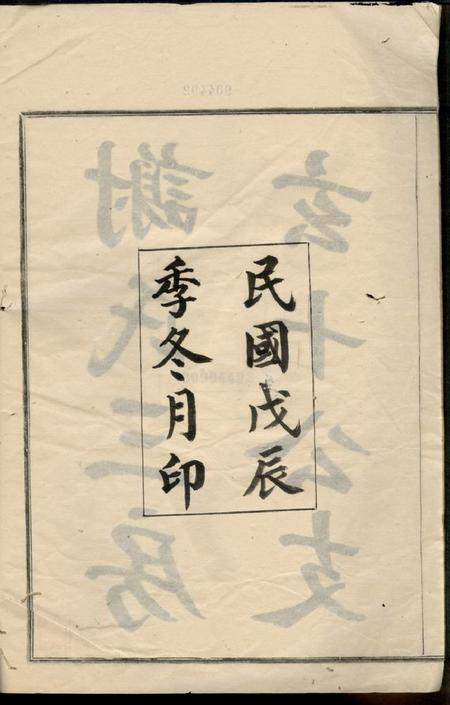 民國戊辰
季冬月印